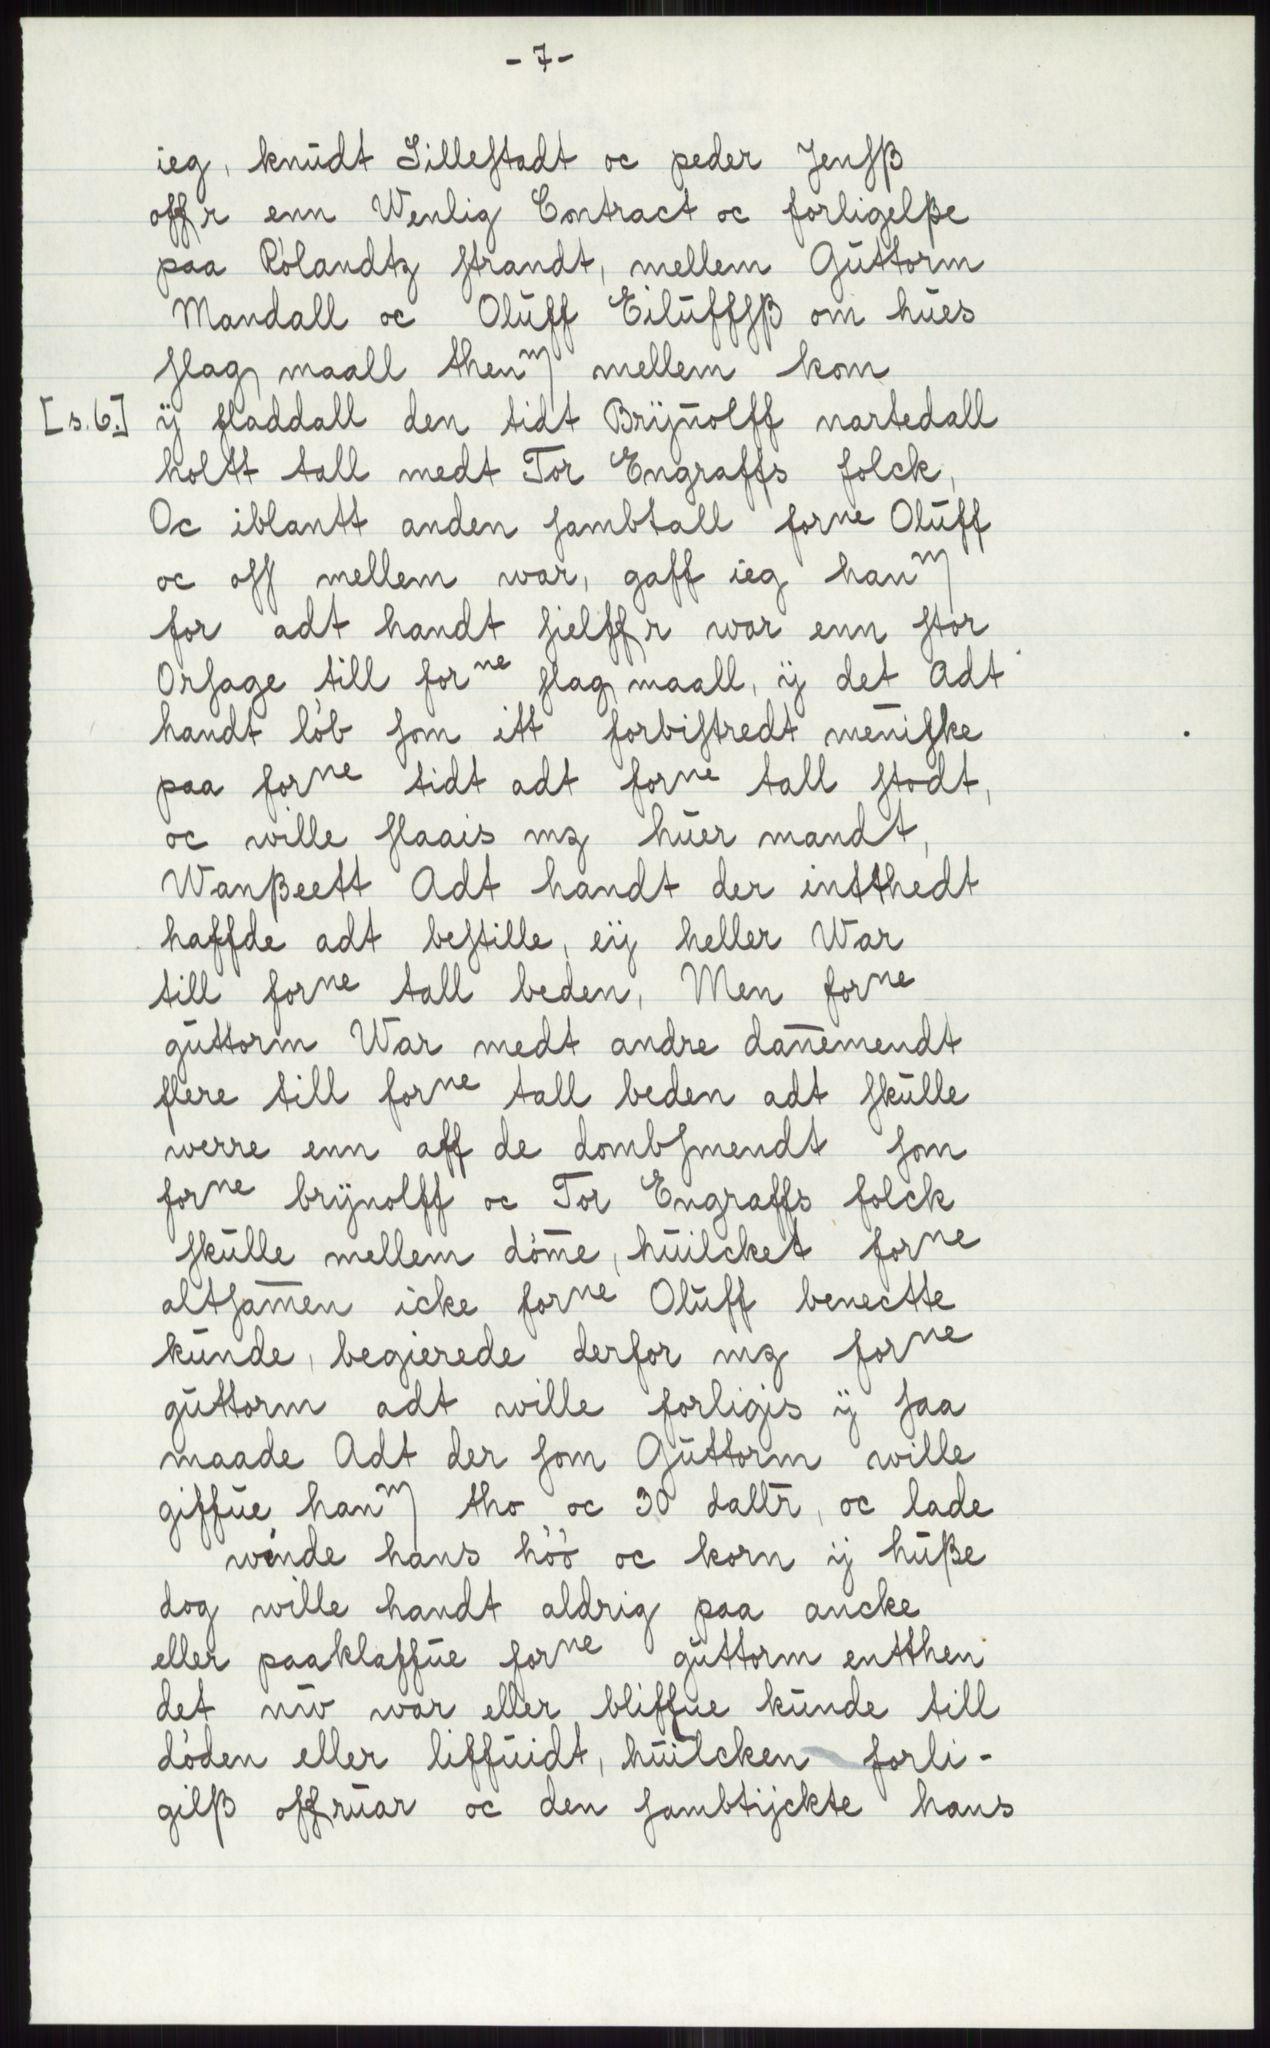 - 7 -
ieg, knŭdt Lillestadt oc peder Jensß
offr enn Wenlig Contract oc forligelße
paa Rólandtz strandt, mellem Gŭttorm
Mandall oc Olŭff Eilŭffsß om hŭes
slag maall thenm mellem kom
[s. 6.] ÿ fladdall den tidt Brÿnolff nartedall
holtt tall medt Tor Engraffs folck,
Oc iblantt anden sambtall forne Olŭff
oc oss mellem war, gaff ieg hanm
for adt handt sielffr war enn stor
Orsage till forne slag maall, ÿ det Adt
handt lób som itt forbistredt mēniske
paa forne tidt adt forne tall stodt,
oc wille slaais mz hŭer mandt,
Wanßeett Adt handt der intthedt
haffde adt bestille, eÿ heller War
till forne tall beden, Men forne
gŭttorm War medt andre dan̄emendt
flere till forne tall beden adt skŭlle
werre enn aff de dombsmendt som
forne brÿnolff oc Tor Engraffs folck
skŭlle mellem dóm̄e, hŭilcket forne
altsam̄en icke forne Olŭff benectte
kŭnde, begierede derfor mz forne
gŭttorm adt wille forligis ÿ saa
maade Adt der som Gŭttorm wille
giffŭe hanm tho oc 30 dallr̄, oc lade
winde hans hóó oc korn ÿ hŭße
dog wille handt aldrig paa ancke
eller paaklaffŭe forne gŭttorm entthen
det nŭ war eller bliffŭe kŭnde till
dóden eller liffŭidt, hŭilcken forli-
gilß offrŭar oc den sambtÿckte hans